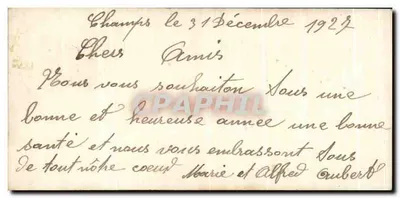 Champs le 31 Décembre 1927
Chers Amis
Nous vous souhaiton tous une
bonne et heureuse année une bonne
santé et nous vous embrassont tous
de tout nôtre coeur Marie et Alfred Aubert